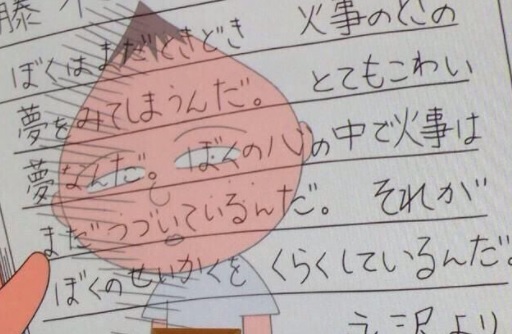 藤
ぼくはまだときどき 火事のときの
夢をみてしまうんだ。 とてもこわい
夢なんだ。ぼくの心の中で火事は
まだつづいているんだ。 それが
ぼくのせいかくを くらくしているんだ。
永沢より